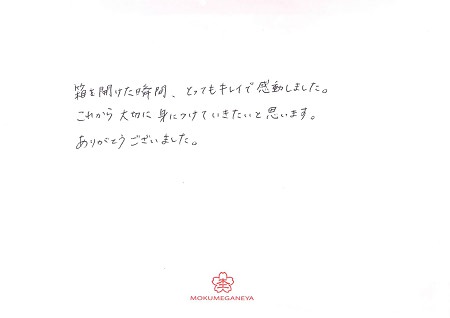 箱を開けた瞬間、とってもキレイで感動しました。
これから大切に身につけていきたいと思います。
ありがとうございました。
MOKUMEGANEYA